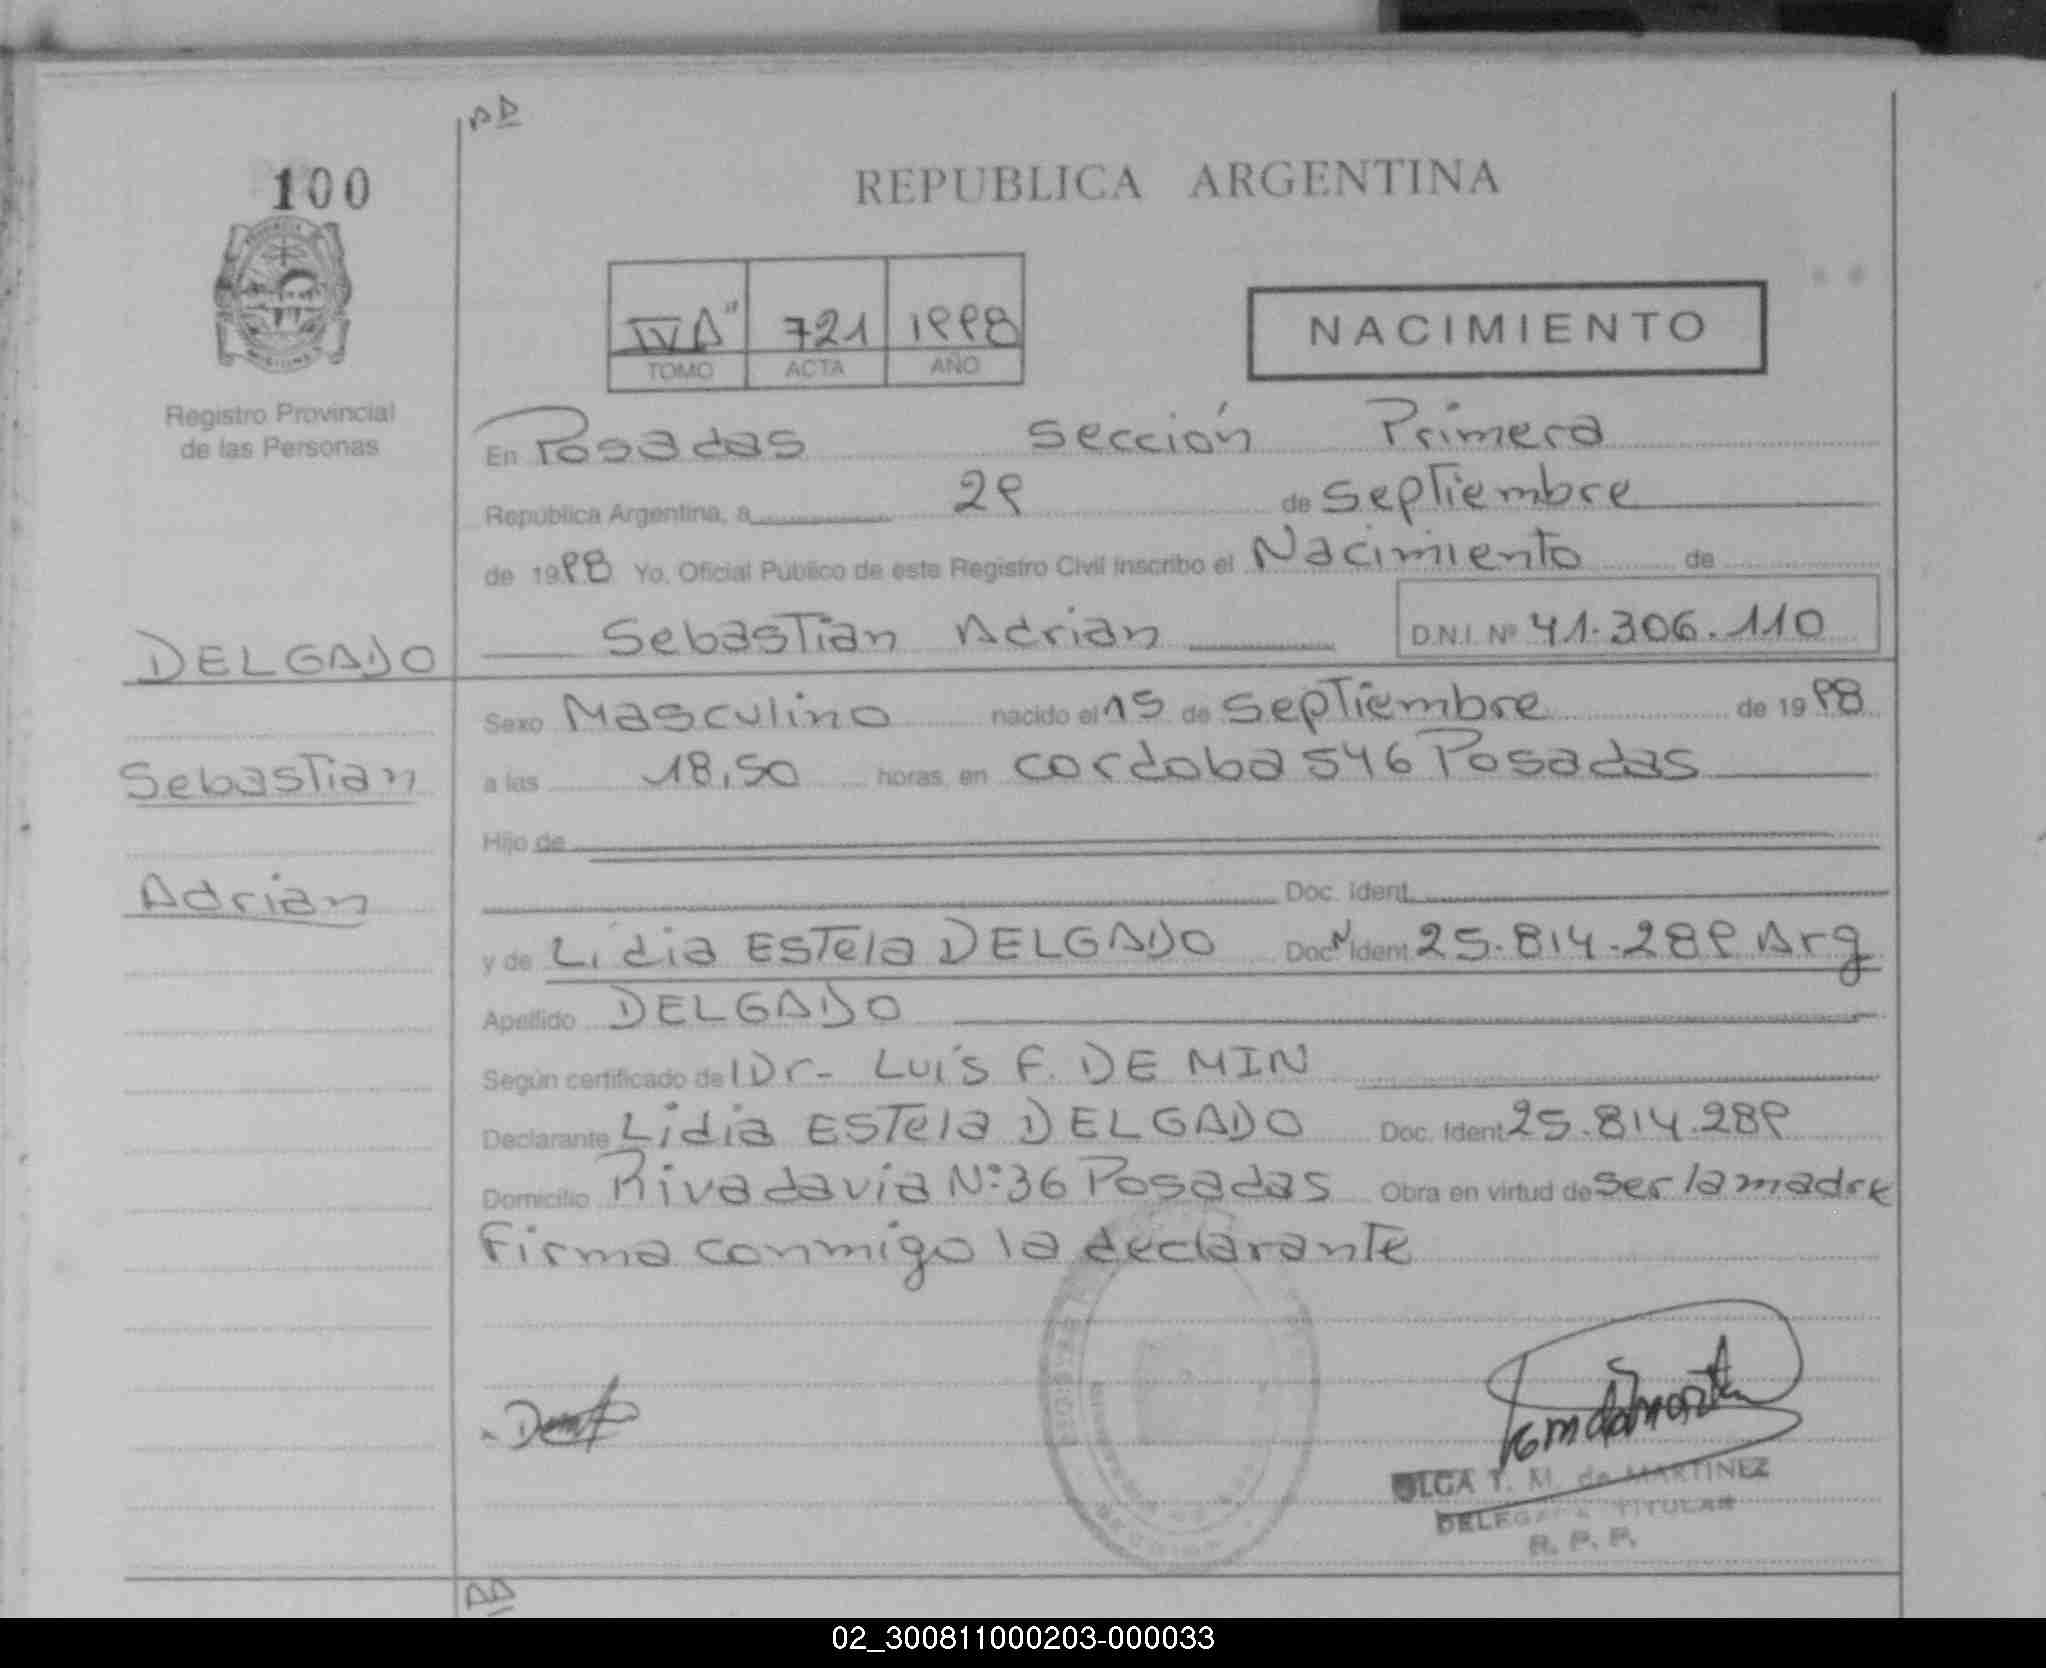 AA
100
REPUBLICA ARGENTINA
IV A"
721
1998
TOMO
ACTA
AÑO
NACIMIENTO
Registro Provincial
de las Personas
En Posadas Sección Primera
República Argentina, a 29 de Septiembre
de 1998 Yo, Oficial Público de este Registro Civil inscribo el Nacimiento de
Sebastian Adrian D.N.I. Nº 41.306.110
DELGADO
Sebastian
Adrian
Sexo Masculino nacido el 15 de Septiembre de 1998
a las 18,50 horas, en Cordoba 546 Posadas
Hijo de
Doc. Ident.
y de Lidia Estela DELGADO Doc. N Ident. 25.814.289 Arg
Apellido DELGADO
Según certificado de Dr- Luis F. DE MIN
Declarante Lidia Estela DELGADO Doc. Ident 25.814.289
Domicilio Rivadavia Nº36 Posadas Obra en virtud de ser la madre
Firma conmigo la declarante
OLGA T. M. de MARTINEZ
DELEGADA TITULAR
R. P. P.
AA
02_300811000203-000033